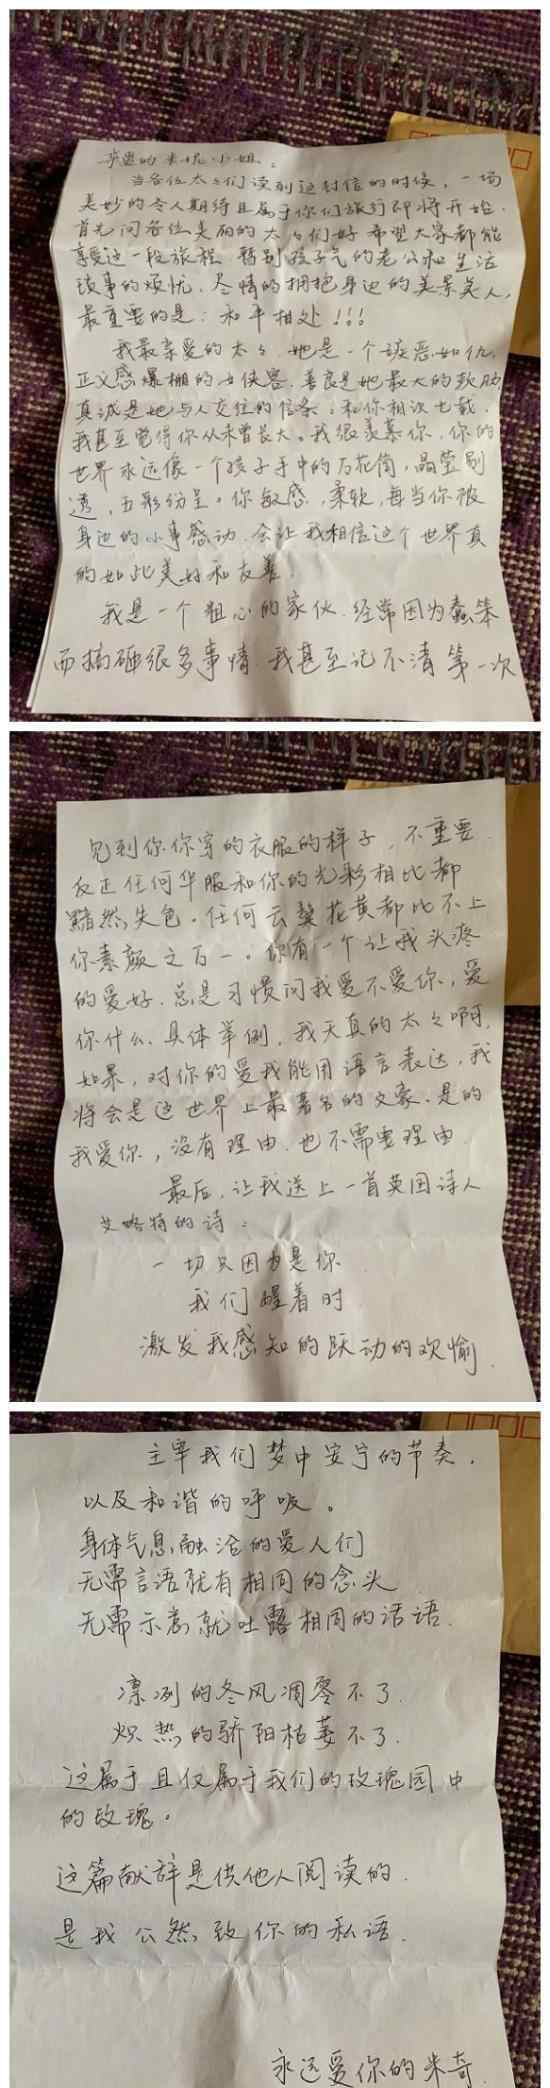 亲爱的米妮小姐:
当各位太太们读到这封信的时候,一场
美妙的令人期待且属于你们旅行即将开始.
首先问各位美丽的太太们好 希望大家都能
享受这一段旅程 暂别孩子气的老公和生活
琐事的烦忧.尽情的拥抱身边的美景美人,
最重要的是:和平相处!!!
我最亲爱的太太.她是一个嫉恶如仇,
正义感爆棚的女侠客.善良是她最大的软肋
真诚是她与人交往的信条.和你相识七载.
我甚至觉得你从未曾长大。我很羡慕你,你的
世界永远像一个孩子手中的万花筒,晶莹剔
透,五彩纷呈。你敏感,柔软,每当你被
身边的小事感动.会让我相信这个世界真
的如此美好和友善.
我是一个粗心的家伙.经常因为蠢笨
而搞砸很多事情.我甚至记不清第一次
见到你你穿的衣服的样子,不重要.
反正任何华服和你的光彩相比都
黯然失色。任何云鬓花黄都比不上
你素颜之百一。你有一个让我头疼
的爱好.总是习惯问我爱不爱你,爱
你什么.具体举例,我天真的太太啊,
如果,对你的爱我能用语言表达,我
将会是这世界上最著名的文豪.是的
我爱你,没有理由.也不需要理由.
最后,让我送上一首英国诗人
艾略特的诗:
一切只因为是你.
我们醒着时
激发我感知的跃动的欢愉.
主宰我们梦中安宁的节奏,
以及和谐的呼吸。
身体气息融洽的爱人们
无需言语就有相同的念头
无需示意就吐露相同的话语.
凛冽的冬风凋零不了.
炽热的骄阳枯萎不了.
这属于且仅属于我们的玫瑰园中
的玫瑰。
这篇献辞是供他人阅读的.
是我公然致你的私语.
永远爱你的米奇.